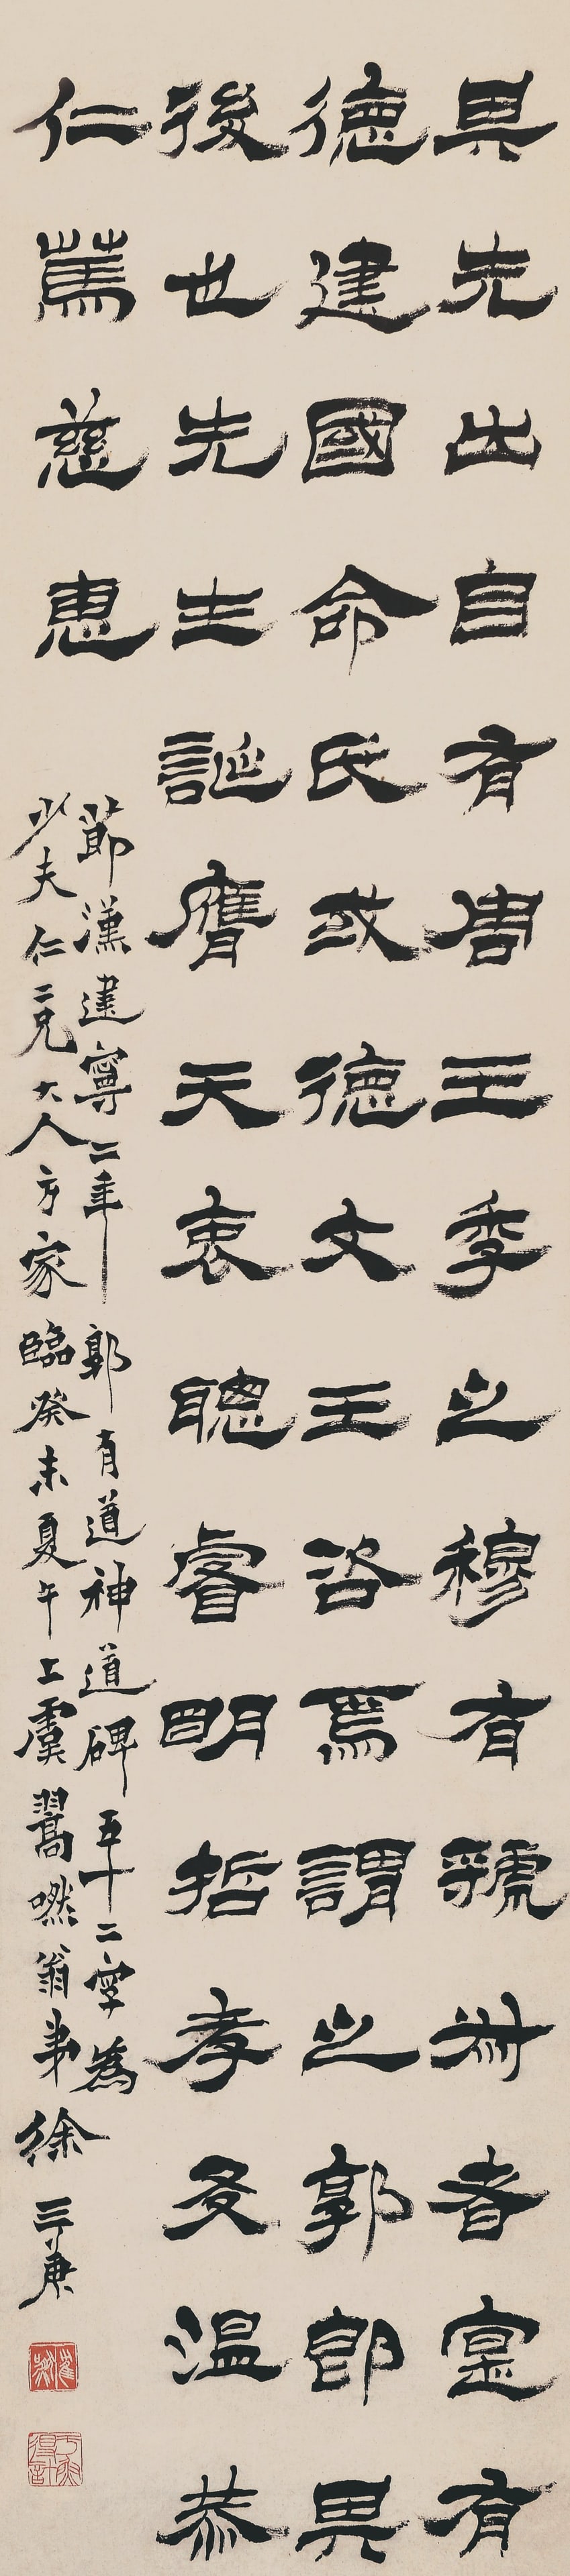 其先出自有周王季之穆有虢叔者寔有
德建國命氏或德文王咨焉謂之郭即其
後也先生誕膺天衷聰睿明哲孝友溫恭
仁篤慈惠
節漢建寧二年郭有道神道碑五十二字為
少夫仁二兄大人方家臨癸未夏午上虞翯嘫翁弟徐三庚